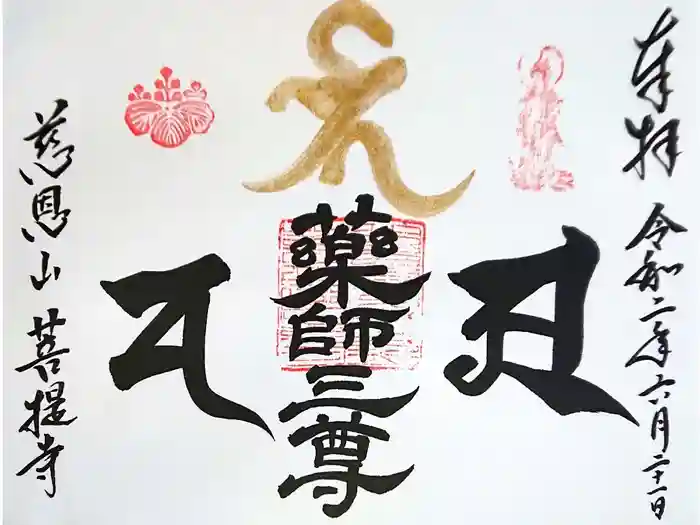 奉拝
令和二年六月二十一日
薬師三尊
慈恩山
菩提寺